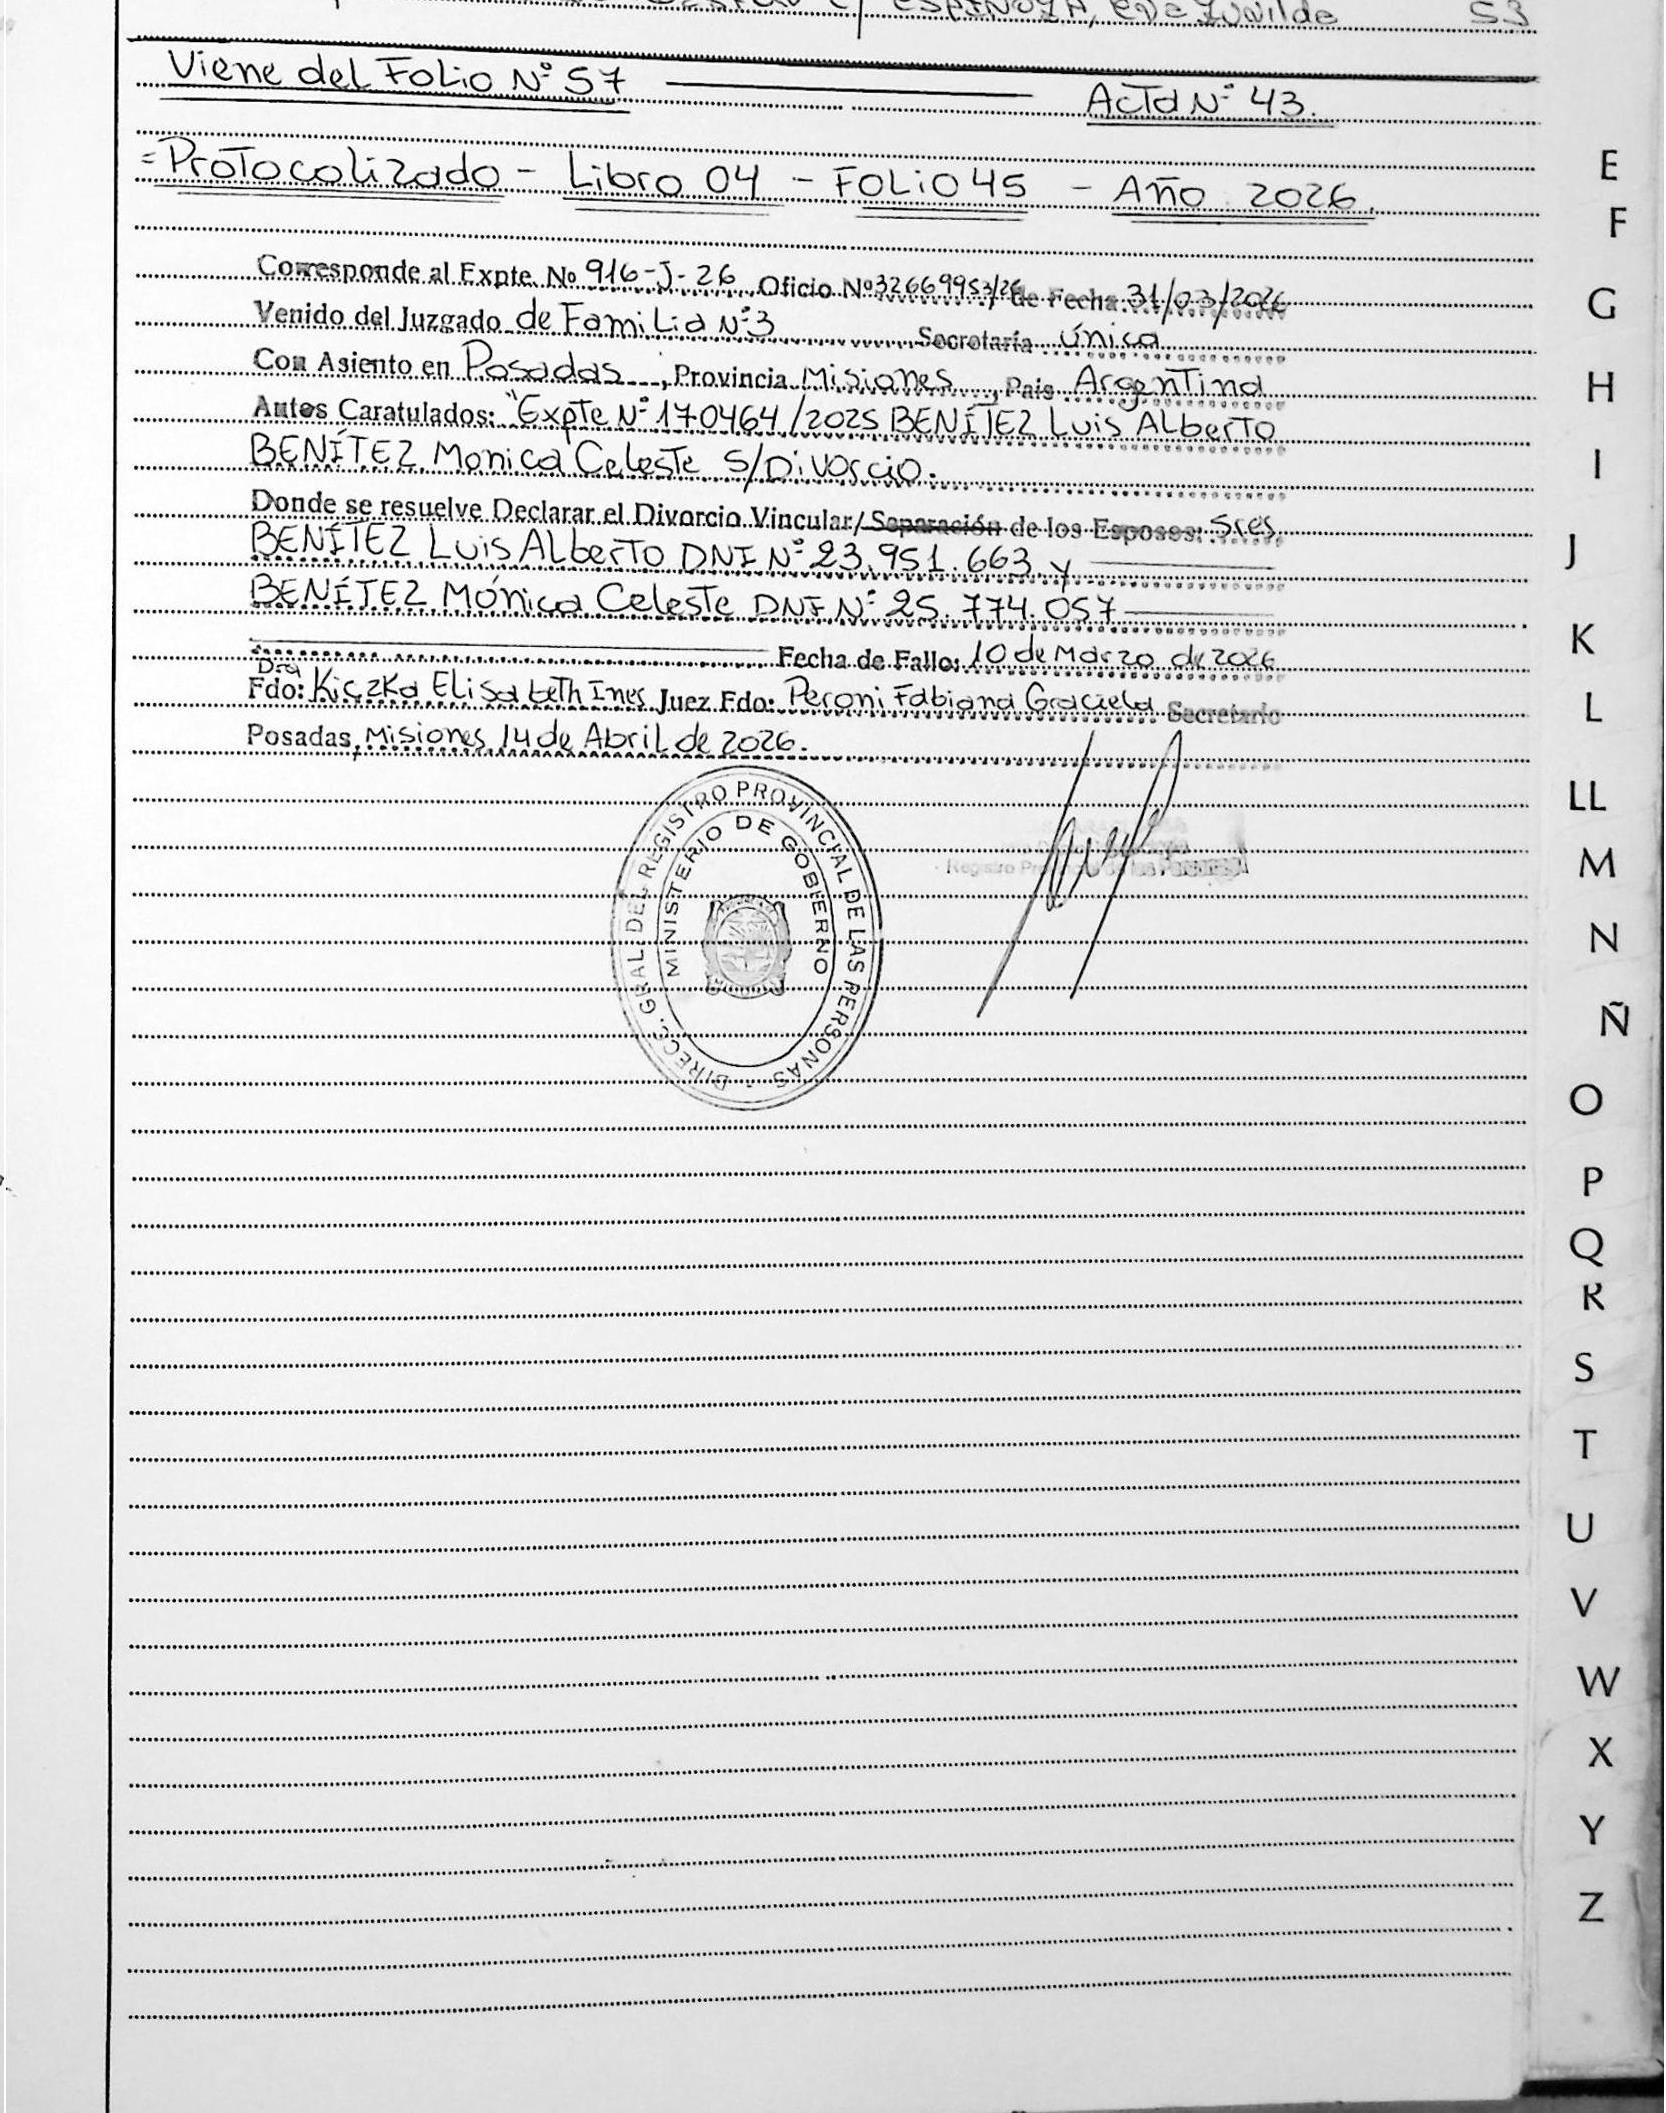 ESPINOZA, Eva Zunilde 53
Viene del Folio N° 57 Acta N° 43.
=Protocolizado - Libro 04 - Folio 45 - Año 2026.
Corresponde al Expte. No 916-J-26 Oficio Nº 32669953/26 de Fecha 31/03/2026
Venido del Juzgado de Familia N°3 Secretaría Única
Con Asiento en Posadas, Provincia Misiones, Pais Argentina
Autos Caratulados: "Expte N° 170464/2025 BENÍTEZ Luis Alberto
BENÍTEZ Monica Celeste S/Divorcio.
Donde se resuelve Declarar el Divorcio Vincular/ Separación de los Esposos: Sres
BENÍTEZ Luis Alberto DNI N° 23.951.663 y
BENÍTEZ Mónica Celeste DNI N° 25.774.057
Fecha de Fallo: 10 de Marzo de 2026
Dra
Fdo: Kiczka Elisabeth Ines Juez Fdo: Peroni Fabiana Graciela Secretario
Posadas, Misiones 14 de Abril de 2026.
DIRECC. GRAL. DEL REGISTRO PROVINCIAL DE LAS PERSONAS
MINISTERIO DE GOBIERNO
E
F
G
H
I
J
K
L
LL
M
N
Ñ
O
P
Q
R
S
T
U
V
W
X
Y
Z